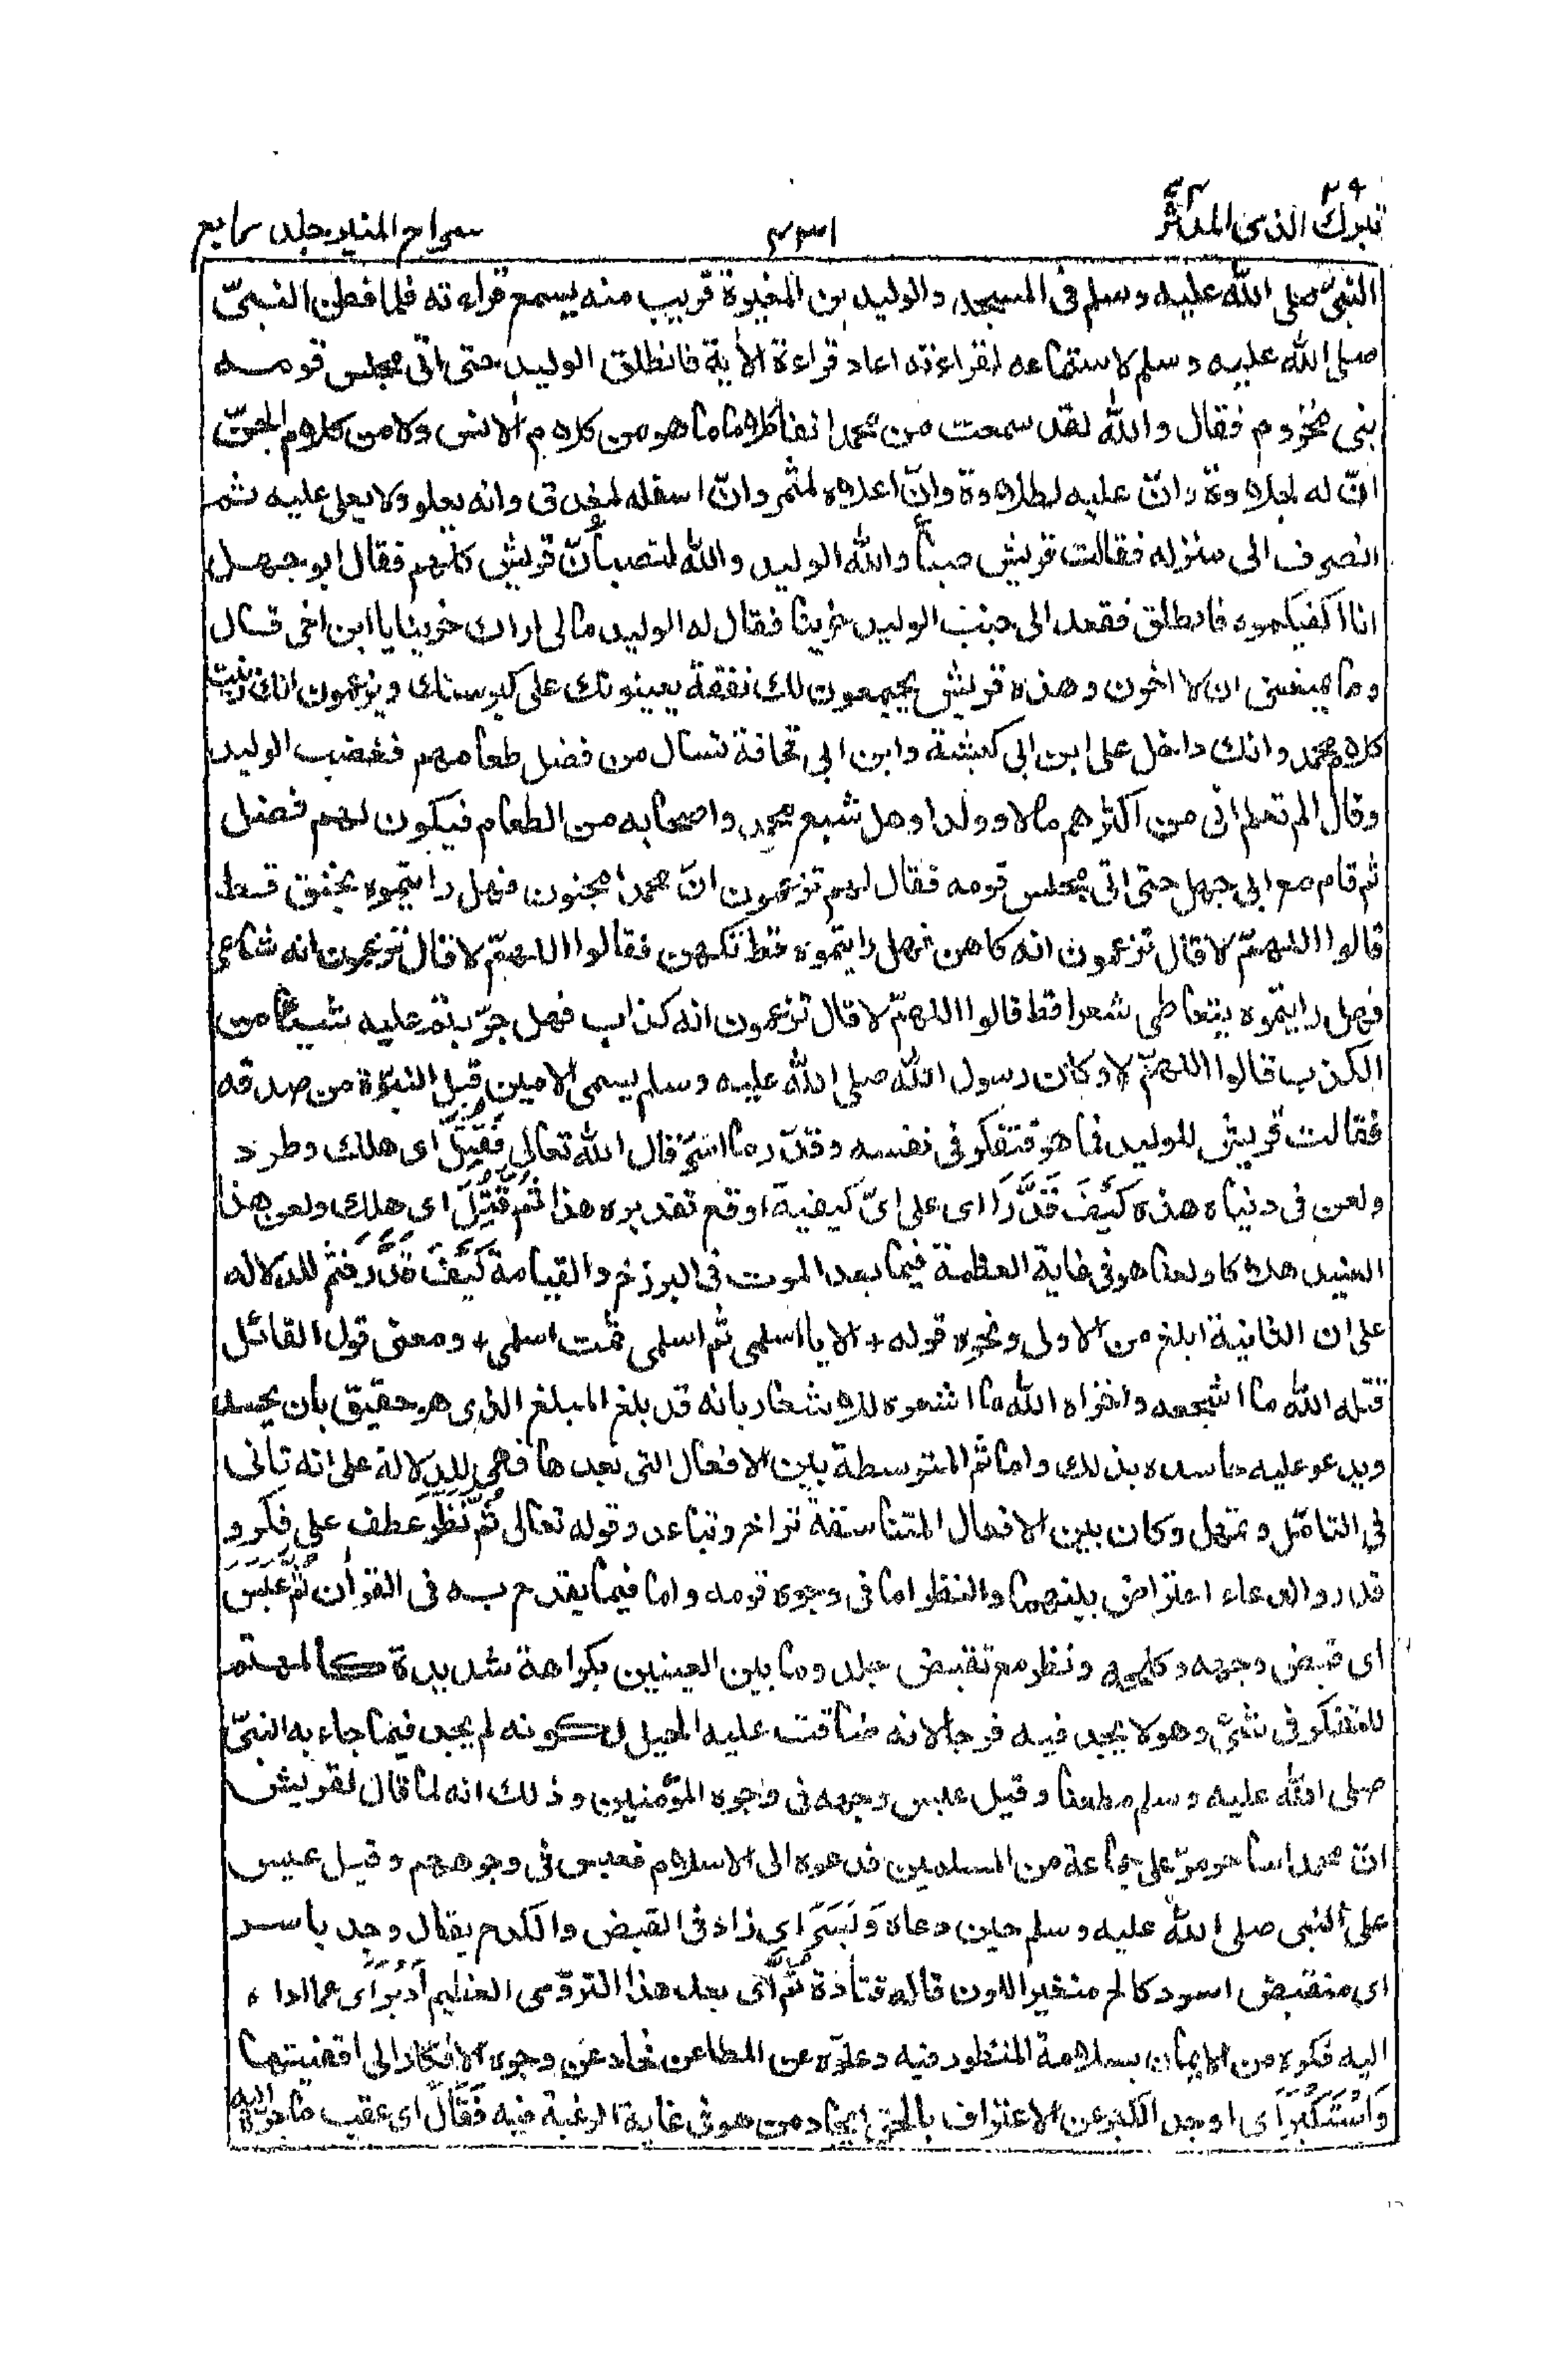 تبرك الذى ٢٩ المدثر ٧٤
٤٣١
سراج المنير جلد سابع
النبىّ صلى الله عليه وسلم فى المسجد والوليد بن المغيرة قريب منه يسمع قراءته فلما فطن النبىّ
صلى الله عليه وسلم لاستماعه لقراءته اعاد قراءة الأية فانطلق الوليد حتى اتى مجلس قومه
بنى مخزوم فقال والله لقد سمعت من محمد انفا كلاما ما هو من كلام الانس ولا من كلام الجنّ
انّ له لحلاوة وانّ عليه لطلاوة وانّ اعلاه لمثمر وانّ اسفله لمغدق وانه يعلو ولا يعلى عليه ثم
انصرف الى منزله فقالت قريش صبأ والله الوليد والله لتصبأنّ قريش كلهم فقال ابو جهل
انا اكفيكموه فانطلق فقعد الى جنب الوليد حزينا فقال له الوليد مالى اراك حزينا يا ابن اخى قال
وما يمنعنى ان لا احزن وهذه قريش يجمعون لك نفقة يعينونك على كبر سنك ويزعمون انك زينت
كلام محمد وانك داخل على ابن ابى كبشة وابن ابى قحافة تسأل من فضل طعامهم فغضب الوليد
وقال الم تعلم انى من اكثرهم مالا وولدا وهل شبع محمد واصحابه من الطعام فيكون لهم فضل
ثم قام مع ابى جهل حتى اتى مجلس قومه فقال لهم تزعمون انّ محمدا مجنون فهل رايتموه يخنق قط
قالوا اللهمّ لا قال تزعمون انه كاهن فهل رايتموه قط تكهن فقالوا اللهمّ لا قال تزعمون انه شاعر
فهل رايتموه يتعاطى شعرا قط قالوا اللهمّ لا قال تزعمون انه كذاب فهل جرّبتم عليه شيئا من
الكذب قالوا اللهمّ لا وكان رسول الله صلى الله عليه وسلم يسمى الامين قبل النبوّة من صدقه
فقالت قريش للوليد فما هو فتفكر فى نفسه وقدّر ما اسرّ قال الله تعالى فَقُتِلَ اى هلك وطرد
ولعن فى دنياه هذه كَيْفَ قَدَّرَ اى على اىّ كيفية اوقع تقديره هذا ثُمَّ قُتِلَ اى هلك ولعن هذا
العنيد هلاكا ولعنا هو فى غاية العظمة فيما بعد الموت فى البرزخ والقيامة كَيْفَ قَدَّرَ فثم للدلالة
على ان الثانية ابلغ من الاولى ونحوه قوله + الا يا اسلمى ثم اسلمى ثمت اسلمى + ومعنى قول القائل
قتله الله ما اشجعه واخزاه الله ما اشعره للاشعار بانه قد بلغ المبلغ الذى هو حقيق بأن يحسد
ويدعو عليه حاسده بذلك واما ثم المتوسطة بين الافعال التى بعدها فهى للدلالة على انه تأنى
فى التأمّل وتمهل وكان بين الافعال المتناسقة تراخ وتباعد وقوله تعالى ثُمَّ نَظَرَ عطف على فكر و
قدر والدعاء اعتراض بينهما والنظر اما فى وجوه قومه واما فيما يقدح به فى القرأن ثُمَّ عَبَسَ
اى قبض وجهه وكلحه ونظر مع تقبض جلد وما بين العينين بكراهة شديدة كالمهتم
للمتفكر فى شىء وهو لا يجد فيه فرجا لانه ضاقت عليه الحيل لكونه لم يجد فيما جاء به النبىّ
صلى الله عليه وسلم مطعنا وقيل عبس وجهه فى وجوه المؤمنين وذلك انه لما قال لقريش
انّ محمدا ساحر مرّ على جماعة من المسلمين فدعوه الى الاسلام فعبس فى وجوههم وقيل عبس
على النبى صلى الله عليه وسلم حين دعاه وَبَسَرَ اى زاد فى القبض والكلح يقال وجه باسر
اى منقبض اسود كالح متغير اللون قاله قتادة ثُمَّ اى بعد هذا التروّى العظيم أَدْبَرَ اى عما اداه
اليه فكره من الايمان بسلامة المنظور فيه وعلوّه عن المطاعن فحاد عن وجوه الافكار الى اقفيتها
وَاسْتَكْبَرَ اى اوجد الكبر عن الاعتراف بالحق ايجاد من هو فى غاية الرغبة فيه فَقَالَ اى عقب ما جرّه اليه